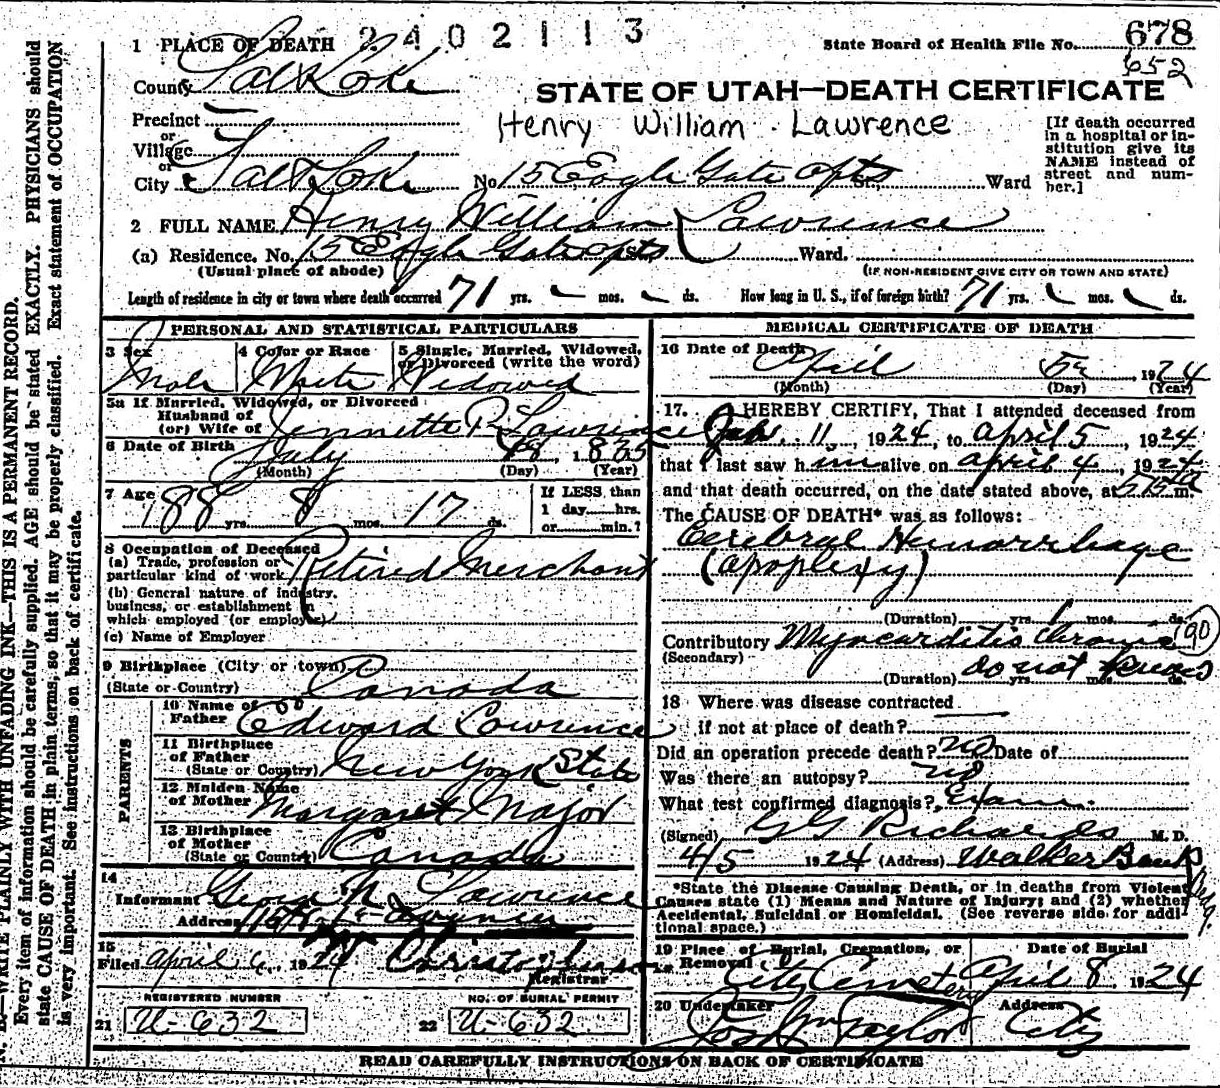 2402113
678
652
State Board of Health File No.
1 PLACE OF DEATH
County Salt Lake
STATE OF UTAH—DEATH CERTIFICATE
Precinct
or
Village
or
Henry William Lawrence
[If death occurred in a hospital or institution give its NAME instead of street and number.]
City Salt Lake No 15 Eagle Gate Apts St., Ward
2 FULL NAME Henry William Lawrence
(a) Residence. No. 15 Eagle Gate Apts St. Ward.
(Usual place of abode) (IF NON-RESIDENT GIVE CITY OR TOWN AND STATE)
Length of residence in city or town where death occurred 71 yrs. mos. ds. How long in U. S., if of foreign birth? 71 yrs. mos. ds.
PERSONAL AND STATISTICAL PARTICULARS
3 Sex Male
4 Color or Race White
5 Single, Married, Widowed, or Divorced (write the word) Widowed
5a If Married, Widowed, or Divorced
Husband of
(or) Wife of Jennette P. Lawrence
6 Date of Birth July 18, 1835
(Month) (Day) (Year)
7 Age 88 yrs. 8 mos. 17 ds.
If LESS than
1 day hrs.
or min.?
8 Occupation of Deceased
(a) Trade, profession or particular kind of work Retired Merchant
(b) General nature of industry, business, or establishment in which employed (or employer)
(c) Name of Employer
9 Birthplace (City or town)
(State or Country) Canada
PARENTS
10 Name of Father Edward Lawrence
11 Birthplace of Father
(State or Country) New York State
12 Maiden Name of Mother Margaret Major
13 Birthplace of Mother
(State or Country) Canada
14
Informant Lawrence
Address
15
Filed April 6, 1924
Registrar
REGISTERED NUMBER NO. OF BURIAL PERMIT
21 U-632 22 U-632
MEDICAL CERTIFICATE OF DEATH
16 Date of Death April 5, 1924
(Month) (Day) (Year)
17. I HEREBY CERTIFY, That I attended deceased from
11, 1924, to April 5, 1924
that I last saw him alive on April 4, 1924
and that death occurred, on the date stated above, at m.
The CAUSE OF DEATH* was as follows:
Cerebral Hemorrhage
(apoplexy)
(Duration) yrs. 1 mos. ds.
Contributory Myocarditis chronic 90
(Secondary)
do not know
(Duration) yrs. mos. ds.
18 Where was disease contracted
if not at place of death?
Did an operation precede death? no Date of
Was there an autopsy? no
What test confirmed diagnosis? Exam.
(Signed) G G Richards M. D.
4/5 1924 (Address) Walker Bank Bldg.
*State the Disease Causing Death, or in deaths from Violent
Causes state (1) Means and Nature of Injury; and (2) whether
Accidental, Suicidal or Homicidal. (See reverse side for addi
tional space.)
19 Place of Burial, Cremation, or Removal City Cemetery
Date of Burial April 8 1924
20 Undertaker Jos Wm Taylor
Address City
READ CAREFULLY INSTRUCTIONS ON BACK OF CERTIFICATE
N. B.—WRITE PLAINLY WITH UNFADING INK—THIS IS A PERMANENT RECORD.
Every item of information should be carefully supplied. AGE should be stated EXACTLY. PHYSICIANS should
state CAUSE OF DEATH in plain terms, so that it may be properly classified. Exact statement of OCCUPATION
is very important. See instructions on back of certificate.